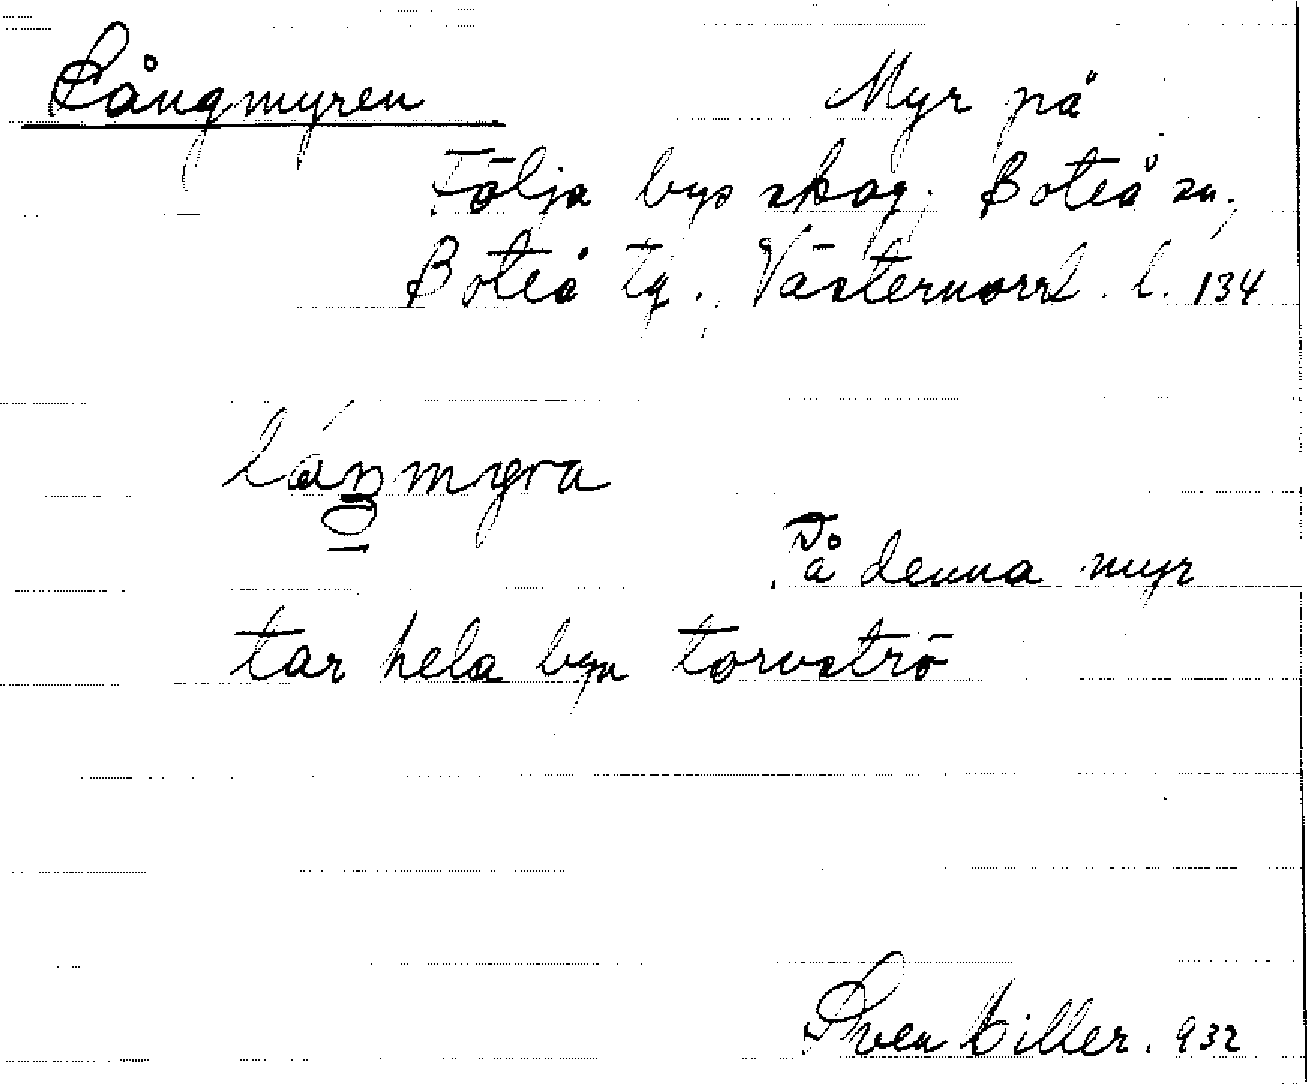 Långmyren
Myr på
Följa bys skog. Boteå sn,
Boteå tg., Västernorrl. l. 134
På denna myr
tar hela byn torvströ
Sven Hiller. 932